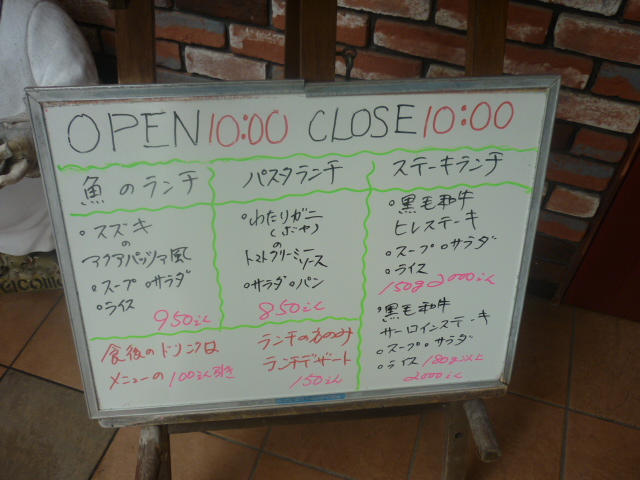 OPEN 10:00 CLOSE 10:00
魚のランチ
・スズキ
の
アクアパッツァ風
・スープ ・サラダ
・ライス
950えん
パスタランチ
・わたりガニ
トマトクリーミー
ソース
・サラダ ・パン
850えん
ステーキランチ
・黒毛和牛
ヒレステーキ
・スープ ・サラダ
・ライス
150g 2000えん
・黒毛和牛
サーロインステーキ
・スープ ・サラダ
・ライス 180g以上
2000えん
食後のドリンクは
メニューの100えん引き
ランチの方のみ
ランチデザート
150えん